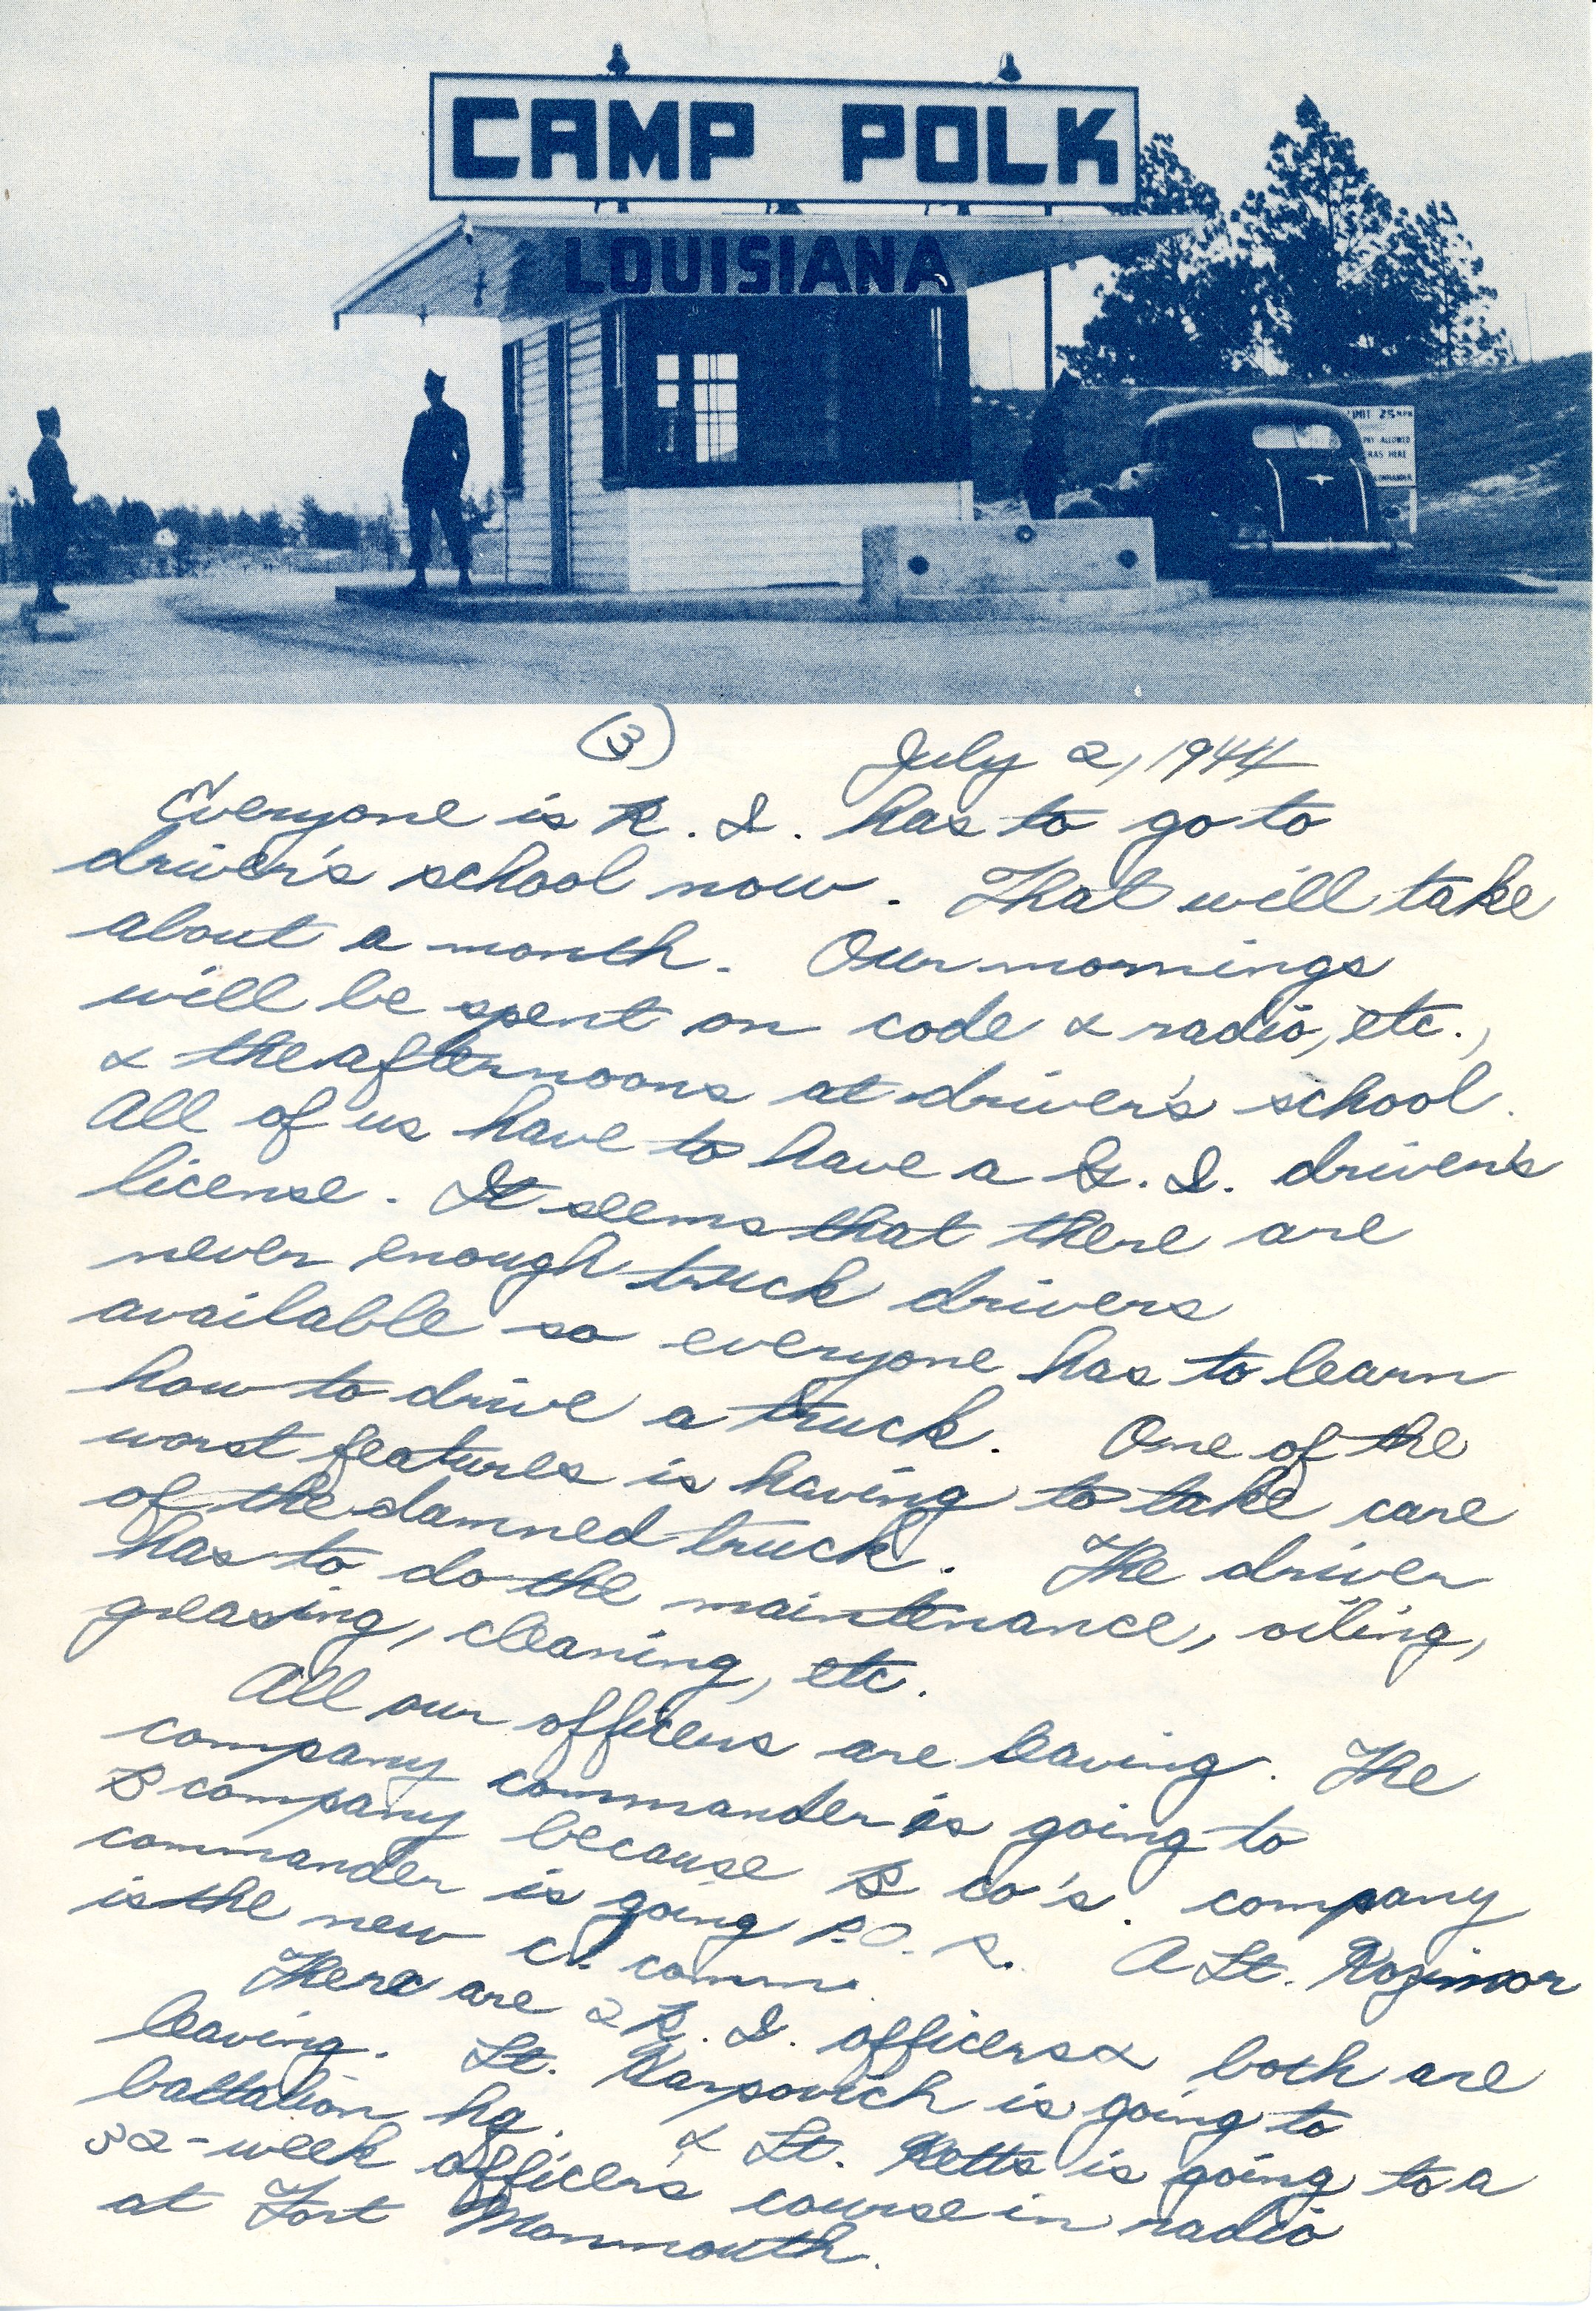 CAMP POLK
LOUISIANA
LIMIT 25 MPH
ALLOWED
HERE
(3) July 2, 1944
Everyone is R. I. has to go to
driver's school now. That will take
about a month. Our mornings
will be spent on code & radio, etc.,
& the afternoons at driver's school.
All of us have to have a G. I. driver's
license. It seems that there are
never enough truck drivers
available so everyone has to learn
how to drive a truck. One of the
worst features is having to take care
of the damned truck. The driver
has to do the maintenance, oiling,
greasing, cleaning, etc.
All our officers are leaving. The
company commander is going to
B company because B co's. company
commander is going P.O.R. A Lt.
is the new co. comm.
There are 2 R. I. officers & both are
leaving. Lt. Karpovich is going to
battalion hq. & Lt. Ketts is going to a
32-week officers course in radio
at Fort Monmouth.